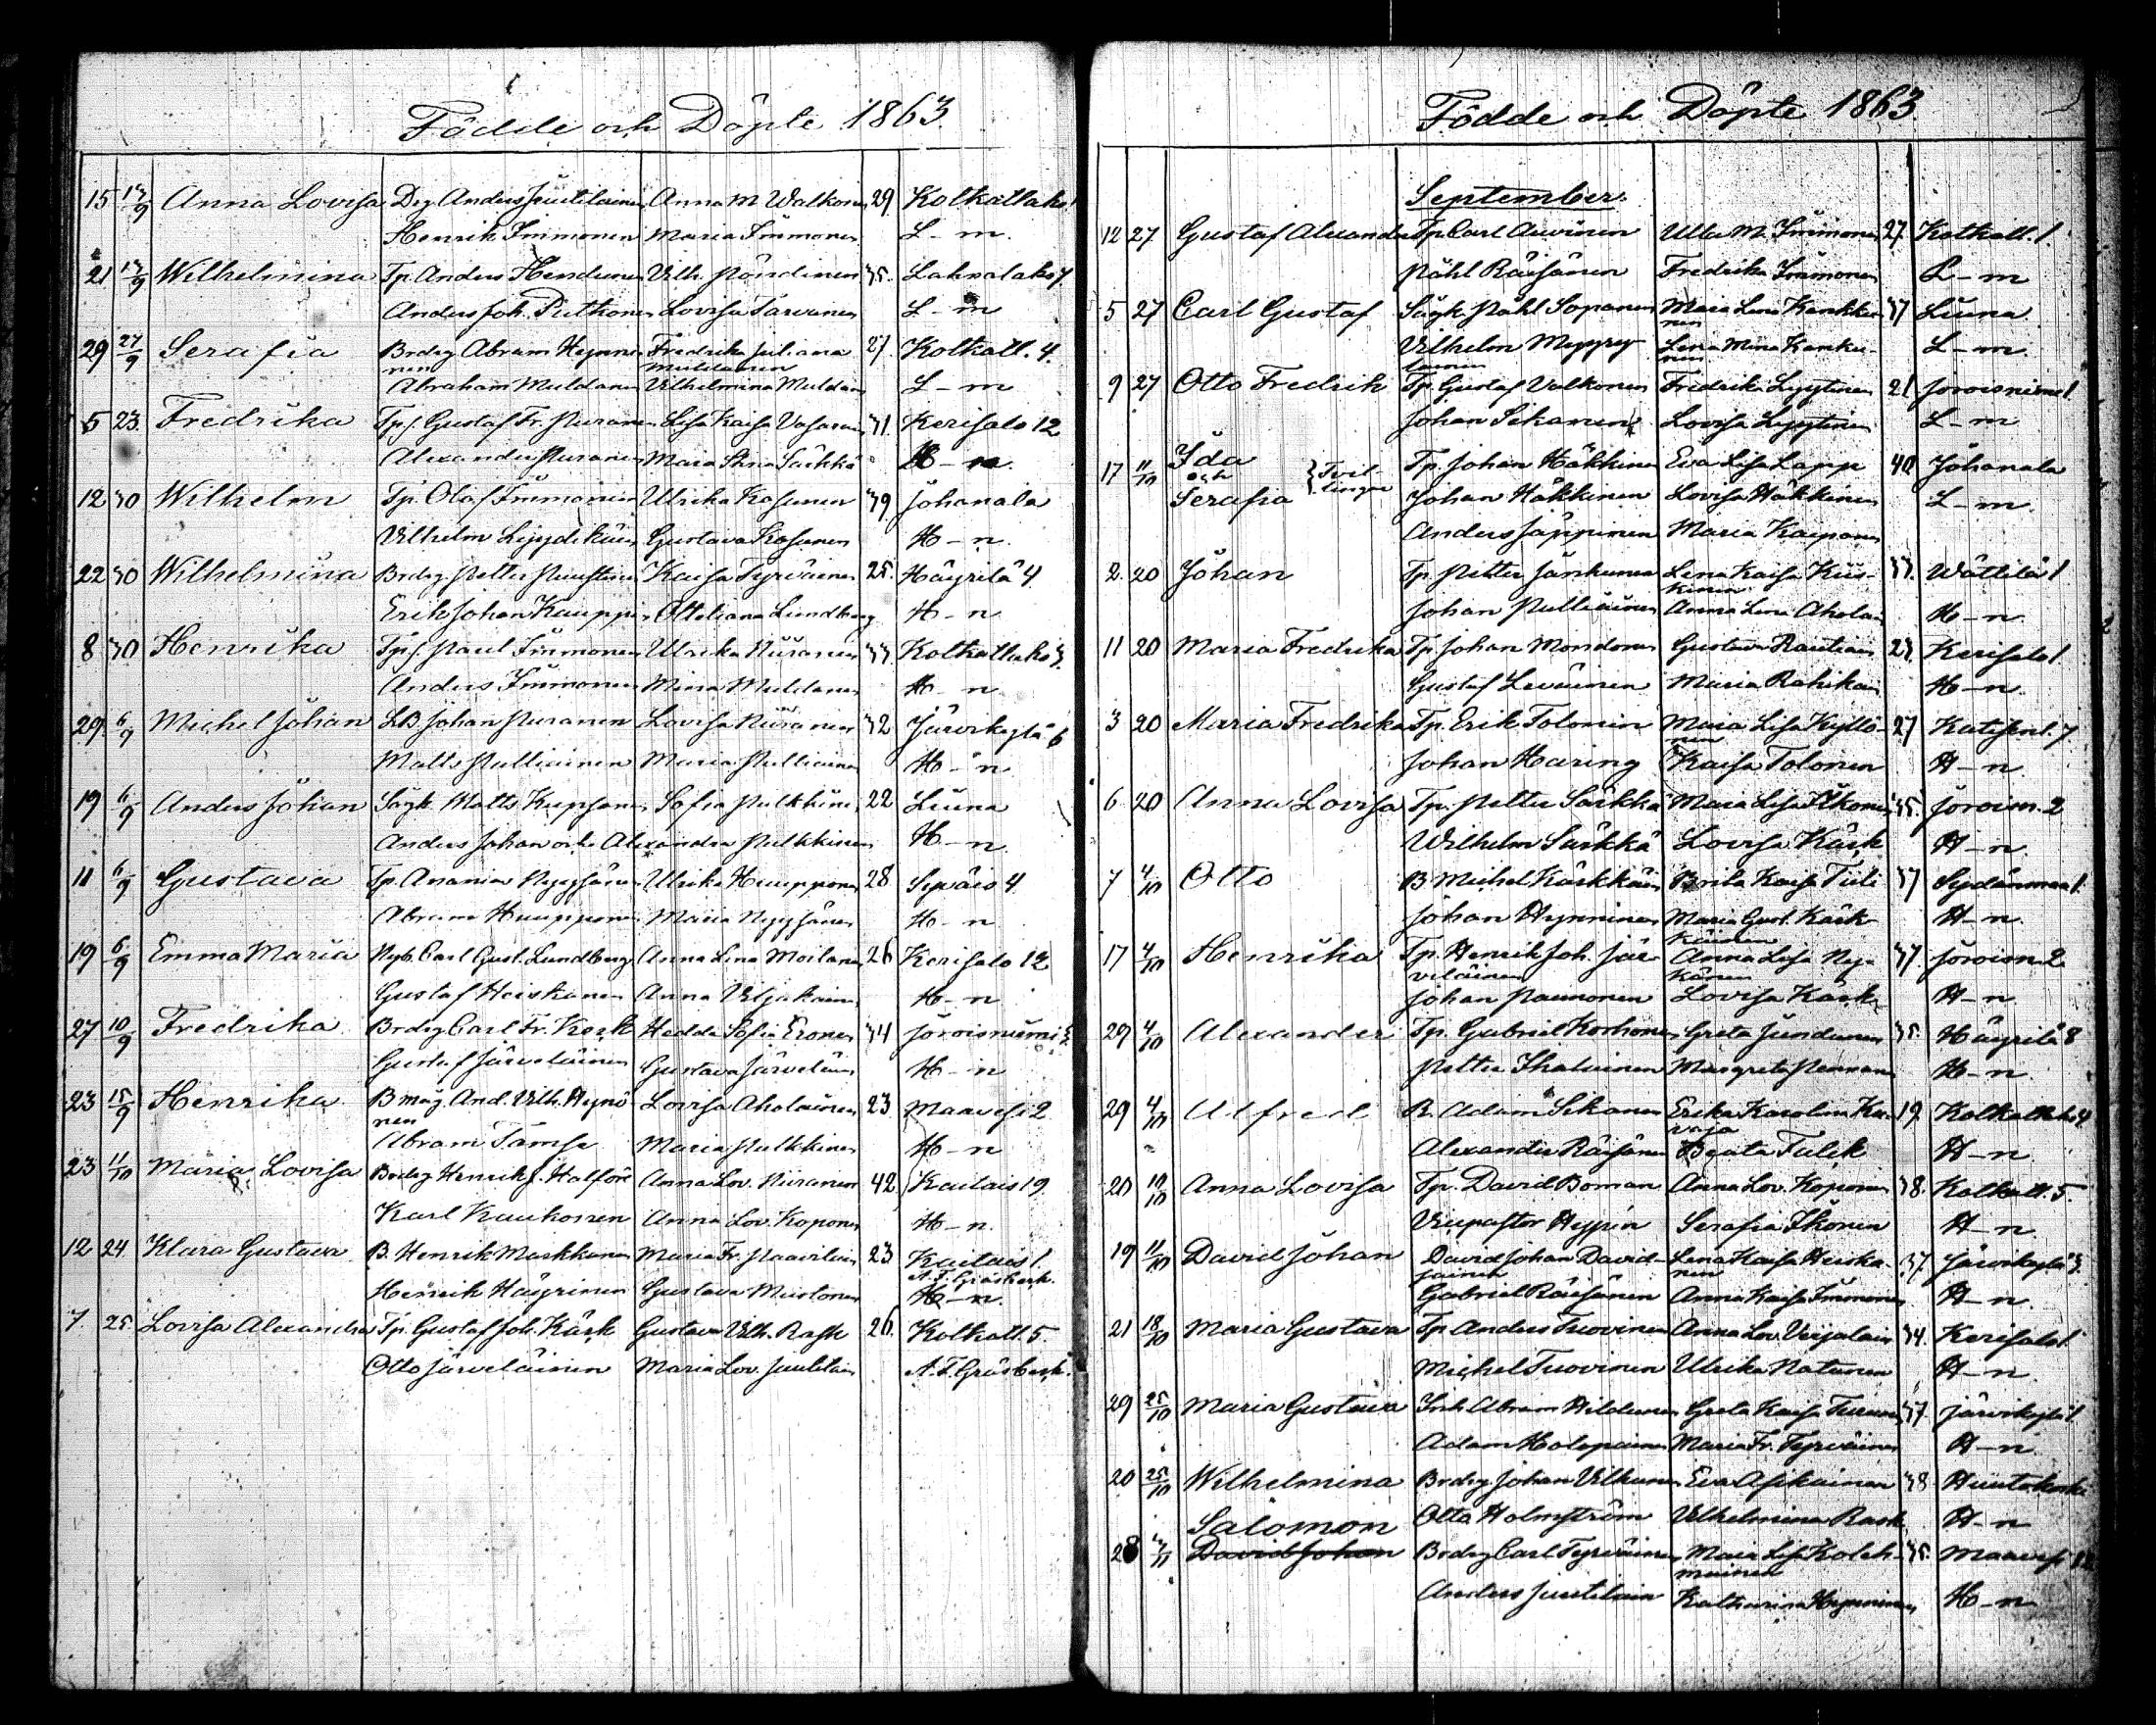 Födde och Döpte 1863.
15 13/9 Anna Lovisa Drg Anders Juutilainen Anna M Walkonen 29. Kolkatlaks 1
Henrik Immonen Maria Immonen L-m.
21 13/9 Wilhelmina Tp. Anders Vilh. 35. Lahnalaks 7
Anders Joh. Putkonen Lovisa Tarvanen L-m
29 27/9 Serafia Brdrg Abram Hynni- Fredrika Juliana 27. Kolkatl. 4.
nen Muldanen
Abraham Muldanen Vilhelmina Muldan L-m
5 23. Fredrika Tps. Gustaf Fr. Nuranen Lisa Kaisa 31. Kerisalo 12
Alexander Nuranen Maria Stina Särkkä H-n.
12 30 Wilhelm Tp. Olof Immonen Ulrika Kosunen 39 Johanala
Vilhelm Lyydikäin Gustava Kosunen H-n.
22 30 Wilhelmina Brdrg. Petter Puustinen Kaisa Tyrväinen 25. Häyrilä 4
Erik Johan Kauppi Ottiliana Lundberg H-n
8 30 Henrika Tps. Paul Immonen Ulrika Niiranen 33. Kolkatlaks 3.
Anders Immonen Mina Muldanen H-n
29. 6/9 Michel Johan LB. Johan Nuranen Lovisa Niiranen 32 Järvikylä 6
Matts Pulliainen Maria Pulliainen H-n
19 6/9 Anders Johan Sågk. Matts Sofia Pulkkine 22 Liuna
Anders Johan och Alexandra Pulkkinen H-n.
11 6/9 Gustava Tp. Anania Nyyssönen Ulrika Huupponen 28 Sepäis 4.
Abram Huupponen Maria Nyyssönen H-n
19 6/9 Emma Maria Nyb. Carl Gust. Lundberg Anna Lena Moilanen 26 Kerisalo 12
Gustaf Heiskanen Anna Viljakain H-n
27 10/9 Fredrika Brdrg Carl Fr. Kärk Hedda Sofia Eronen 34 Joroisniemi 3.
Gustaf Järveläinen Gustava Järveläin H-n
23 15/9 Henrika B måg And. Vilh. Hynni- Lovisa Aholainen 23 Maavesi 2
nen
Abram Tämsä Maria Pulkkinen H-n
23 11/10 Maria Lovisa Brdrg Henrik J. Halfors Anna Lov. Niiranen 42 Kaitais 19.
Karl Kaukonen Anna Lov. Koponen H-n.
12 24. Klara Gustava B. Henrik Maskkanen Maria Fr. Paavilain 23 Kaitais 1.
A. F. Gråsbeck.
Henrik Häyrinen Gustava Miettonen H-n.
7. 25. Lovisa Alexandra Tp. Gustaf Joh. Kärk Gustava Vilh. Rask 26. Kolkatl. 5.
Otto Järveläinen Maria Lov. Juutilain A. F. Gråsbeck.
Födde och Döpte 1863
September.
12 27 Gustaf Alexander Tp Carl Auvinen Ulla M. Immonen 27. Kolkatl. 1.
Påhl Räisänen Fredrika Immonen L-m
5 27 Carl Gustaf Sågk. Påhl Sopanen Maria Lena Kankku- 37 Liuna
nen
Vilhelm Myyry Lena Mina Kanku- L-m.
nen
9 27 Otto Fredrik Tp. Gustaf Valkonen Fredrika Lyytinen 21 Joroisniemi 1.
Johan Sikanen Lovisa Lyytinen L-m
17 11/10 Ida Tvil- Tp. Johan Häkkinen Eva Lisa Lapp 40 Johanala
och lingar
Serafia Johan Häkkinen Lovisa Häkkinen L-m.
Anders Jäppinen Maria Kaiponen
2. 20 Johan Tp. Petter Jänkunen Lena Kaisa Kiis- 33. Wättilä 1
kinen
Johan Pulliainen Anna Lena Aholai H-n
11 20 Maria Fredrika Tp. Johan Mondonen Gustava Rautiain 23. Kerisalo 1
Gustaf Leväinen Maria Rahikai H-n.
3 20 Maria Fredrika Tp. Erik Tolonen Maria Lisa Kyllö- 27 Katisenl. 7.
nen
Johan Haring Kaisa Tolonen H-n
6 20 Anna Lovisa Tp. Petter Särkkä Maria Lisa Ikonen 35. Joroism. 2
Wilhelm Särkkä Lovisa Kärk H-n.
7 4/10 Otto B Michel Kärkkäin Brita Kaisa Tuli 37 Sydänmaa 1.
Johan Hynninen Maria Gust. Kärk- H-n.
käinen
17 4/10 Henrika Tp. Henrik Joh. Jär- Anna Lisa 37. Joroism. 2
veläinen
Johan Paunonen Lovisa Kärk H-n.
29 4/10 Alexander Tp. Gabriel Korhonen Greta Jundunen 35. Häyrilä 8
Petter Ihalainen Margreta Pennanen H-n.
29 4/10 Alfred R. Adam Sikanen Erika Karolina Ka- 19. Kolkatlaks 4
Alexander Räisänen Beata Falck H-n
20 10/10 Anna Lovisa Tp. David Boman Anna Lov. Koponen 38. Kolkatl. 5.
Vicepastor Hypén Serafia Ikonen H-n.
19 11/10 David Johan David Johan David- Lena Kaisa Heiska- 37. Järvikylä 3.
sainen nen
Gabriel Räisänen Anna Kaisa Immonen H-n
21 18/10 Maria Gustava Tp Anders Tuovinen Anna Lov. Viijalain 34. Kerisalo 1.
Michel Tuovinen Ulrika Natunen H-n.
29 25/10 Maria Gustava Inh. Abram Hildunen Greta Kaisa Turunen 37. Järvikylä 1.
Adam Holopainen Maria Fr. Tyrväinen H-n
20 25/10 Wilhelmina Brdrg. Johan Vilkunen Eva Asikainen 38 Huutokoski
Otto Holmström Vilhelmina Rask H-n
Salomon
28 David Johan Brdrg Carl Tyrväinen Maria Lisa Koleh- 35. Maavesi
mainen
Anders Juutilain Katharina Hynninen H-n